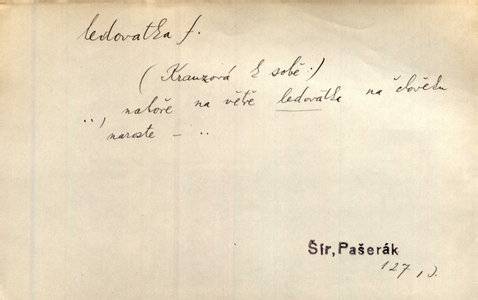 ledovatka f.
(Krauzová k sobě:)
„, nahoře na větě ledovatka na člověku
naroste – "
Šír, Pašerák
127